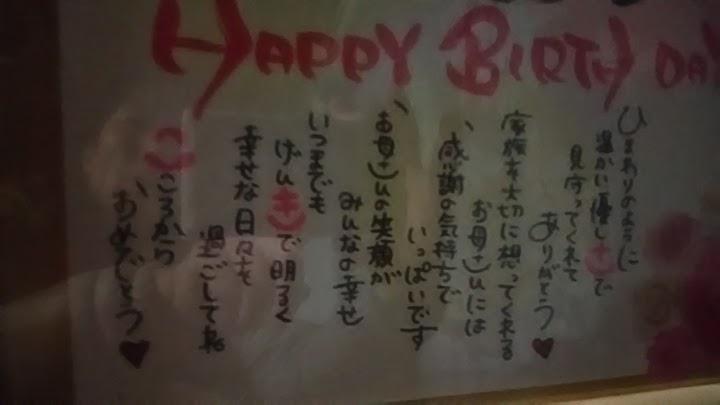 HAPPY BIRTH DAY
ひまわりのように
温かい優しさで
見守ってくれて
ありがとう♥
家族を大切に想ってくれる
お母さんには
感謝の気持ちで
いっぱいです
お母さんの笑顔が
みんなの幸せ
いつまでも
げんきで明るく
幸せな日々を
過ごしてね
こころから
おめでとう♥